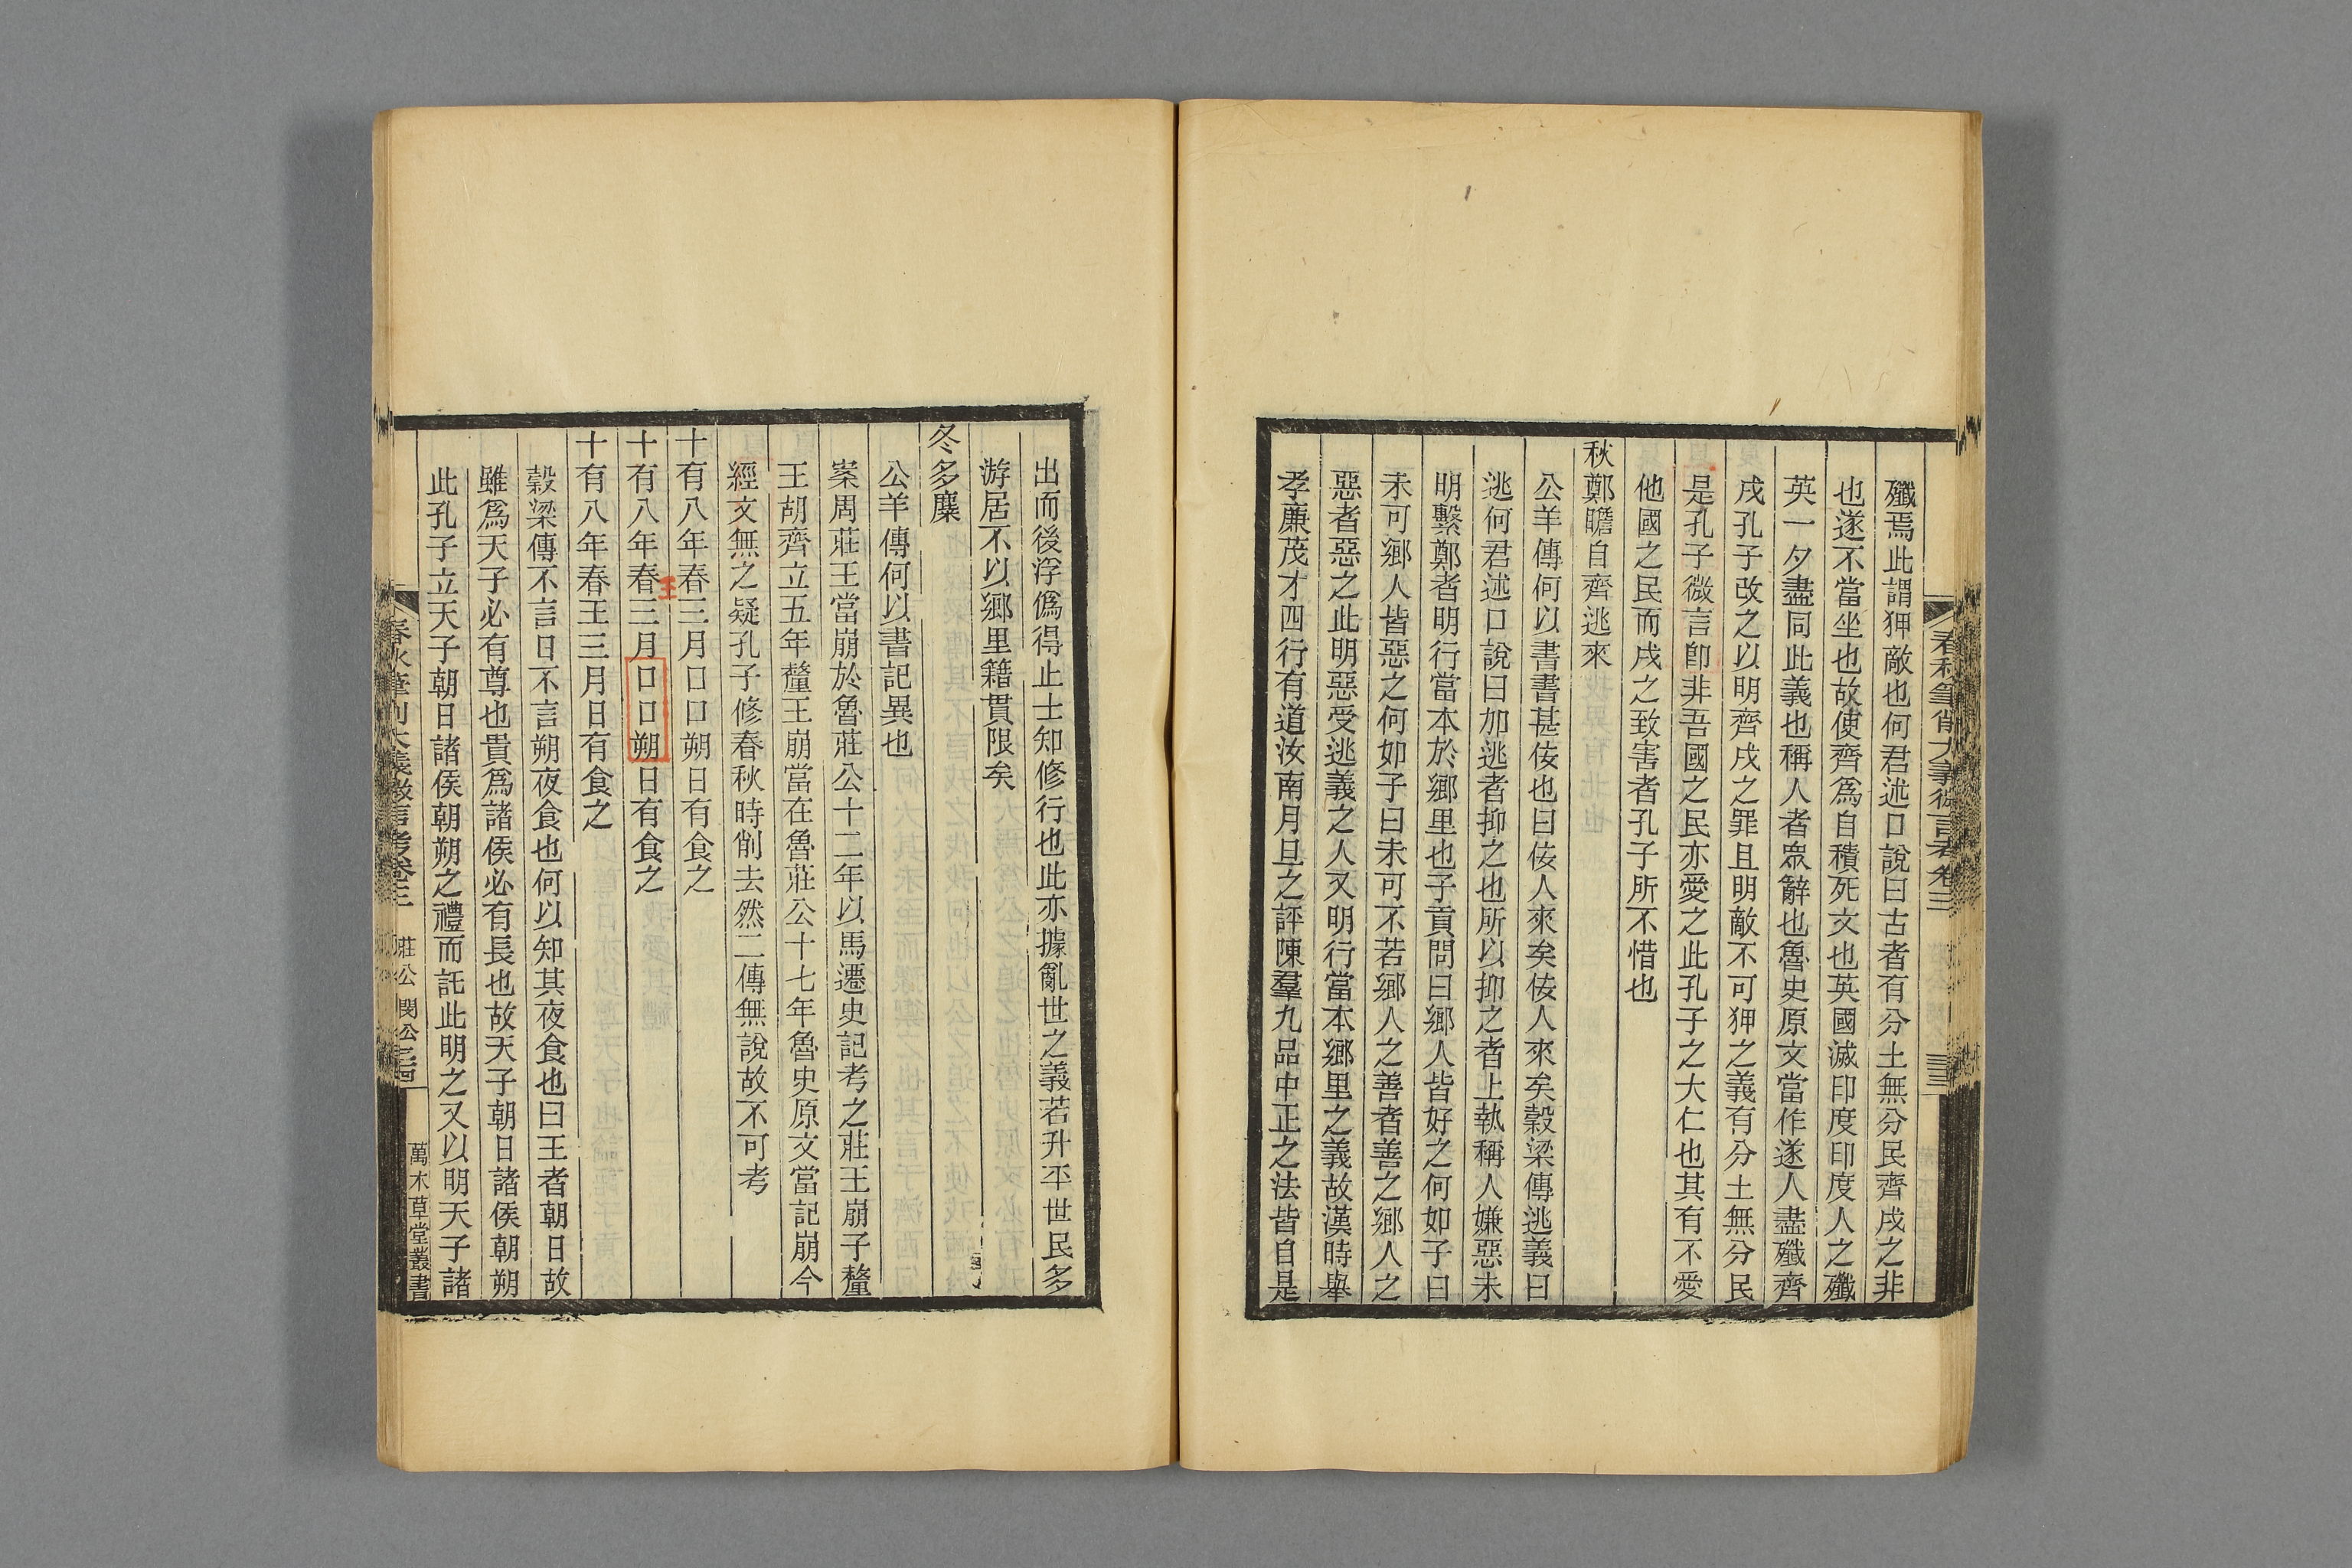 殲焉此謂狎敵也何君述口說曰古者有分土無分民齊戌之非
也遂不當坐也故使齊爲自積死文也英國滅印度印度人之殲
英一夕盡同此義也稱人者眾辭也魯史原文當作遂人盡殲齊
戌孔子改之以明齊戌之罪且明敵不可狎之義有分土無分民
是孔子微言卽非吾國之民亦愛之此孔子之大仁也其有不愛
他國之民而戌之致害者孔子所不惜也
秋鄭瞻自齊逃來
公羊傳何以書書甚佞也曰佞人來矣佞人來矣穀梁傳逃義曰
逃何君述口說曰加逃者抑之也所以抑之者上執稱人嫌惡未
明繫鄭者明行當本於鄉里也子貢問曰鄉人皆好之何如子曰
未可鄉人皆惡之何如子曰未可不若鄉人之善者善之鄉人之
惡者惡之此明惡受逃義之人又明行當本鄉里之義故漢時舉
孝廉茂才四行有道汝南月旦之評陳羣九品中正之法皆自是
出而後浮僞得止士知修行也此亦據亂世之義若升平世民多
游居不以鄉里籍貫限矣
冬多麋
公羊傳何以書記異也
案周莊王當崩於魯莊公十二年以馬遷史記考之莊王崩子釐
王胡齊立五年釐王崩當在魯莊公十七年魯史原文當記崩今
經文無之疑孔子修春秋時削去然二傳無說故不可考
十有八年春三月口口朔日有食之
十有八年春王三月口口朔日有食之
十有八年春王三月日有食之
穀梁傳不言日不言朔夜食也何以知其夜食也曰王者朝日故
雖爲天子必有尊也貴爲諸侯必有長也故天子朝日諸侯朝朔
此孔子立天子朝日諸侯朝朔之禮而託此明之又以明天子諸
春秋筆削大義微言考卷三 莊公 閔公
萬木草堂叢書